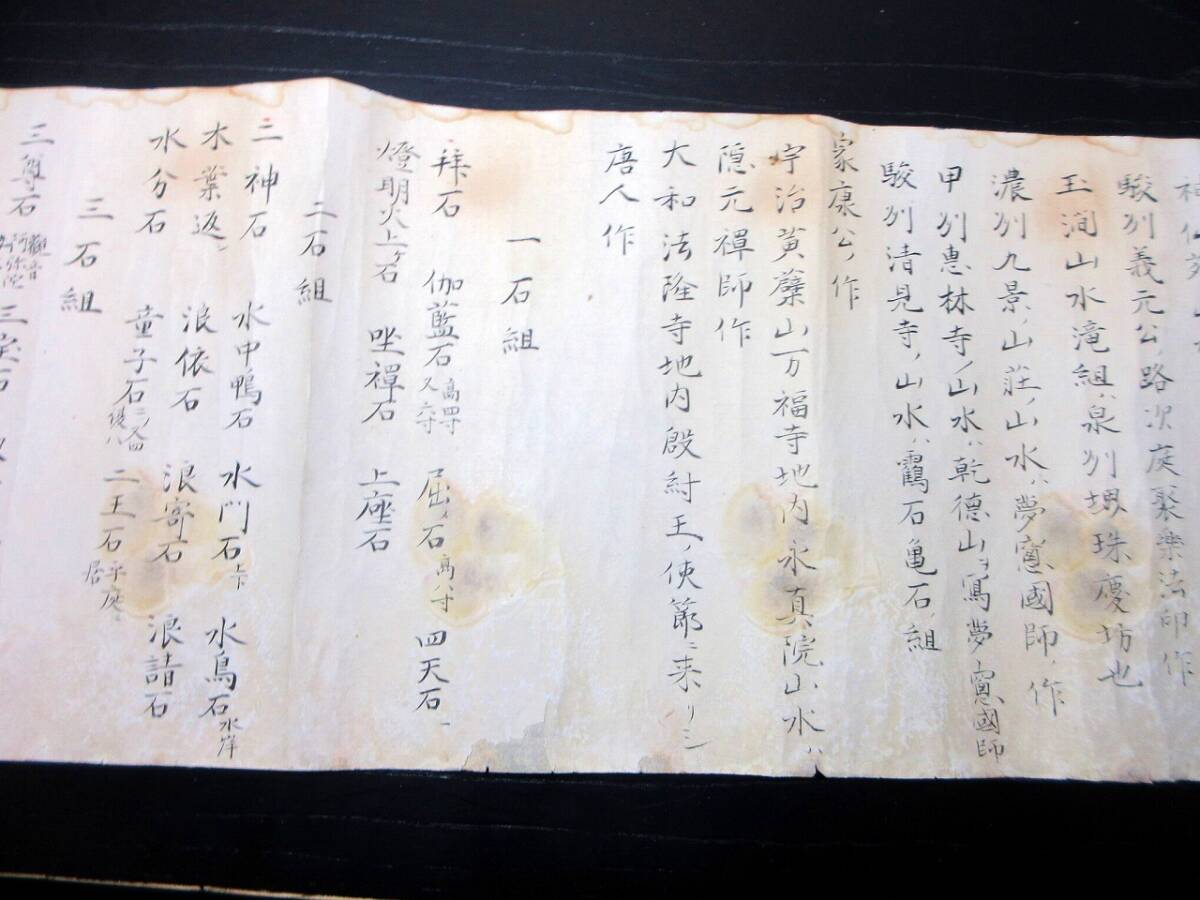 駿州義元公ノ路次庭聚樂法印作
玉澗山水滝組ハ泉州堺珠慶坊也
濃州九景ノ山莊ノ山水ハ夢窓國師ノ作
甲州惠林寺ノ山水ハ乾德山ヲ寫夢窓國師
駿州清見寺ノ山水ハ靏石亀石ノ組
家康公ノ作
宇治黄檗山万福寺地内永真院山水ハ
隠元禅師作
大和法隆寺地内殷紂王ノ使節ニ来リシ
唐人作
一石組
拜石 伽藍石 高四寸又六寸 屈ノ石 高八寸 四天石
燈明火上ヶ石 坐禪石 上座石
二石組
三神石 水中鴨石 水門石 上下 水鳥石 水岸
木葉返シ 浪依石 浪寄石 浪請石
水分石 童子石 二王石 平庭ニ居
三石組
三尊石 觀音 阿弥陀